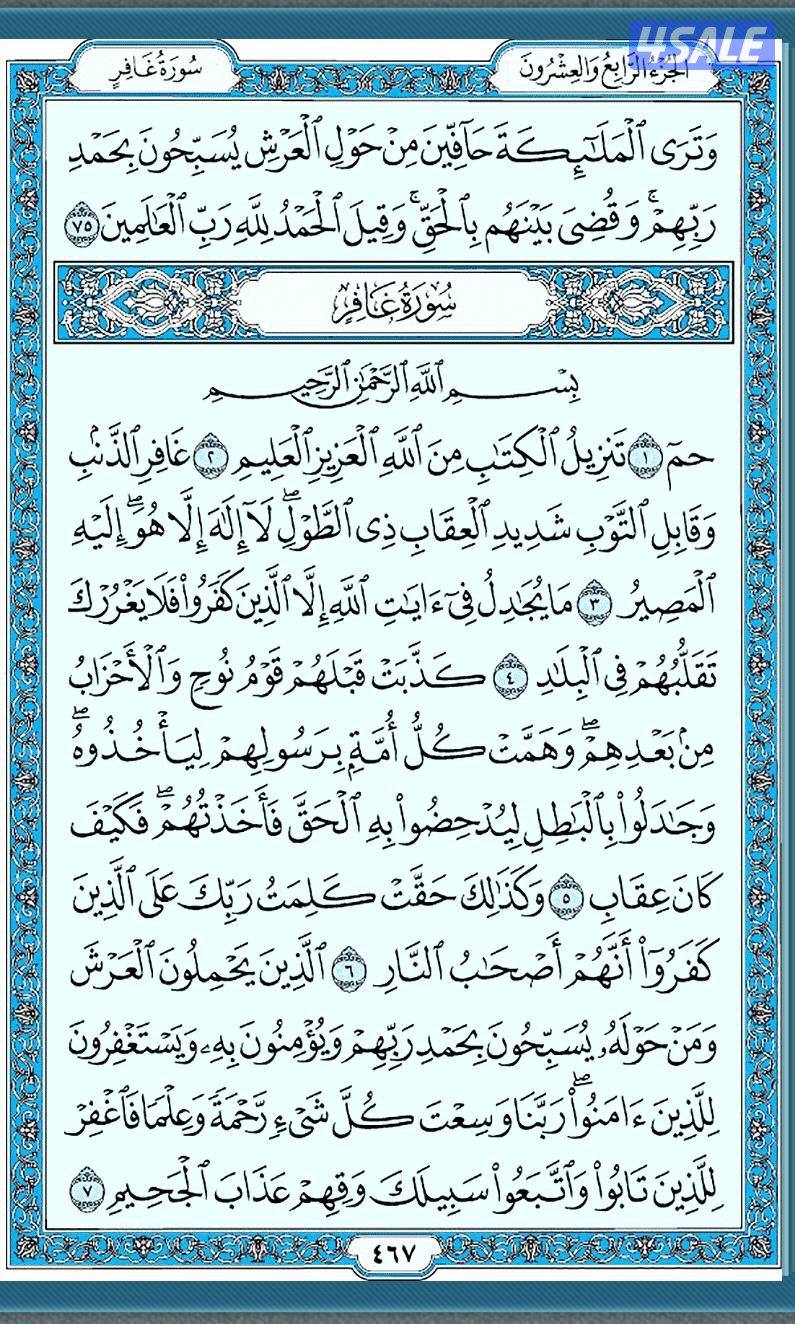 4SALE
الجزء الرابع والعشرون
سورة غافر
وَتَرَى ٱلْمَلَـٰٓئِكَةَ حَآفِّينَ مِنْ حَوْلِ ٱلْعَرْشِ يُسَبِّحُونَ بِحَمْدِ
رَبِّهِمْ ۖ وَقُضِىَ بَيْنَهُم بِٱلْحَقِّ وَقِيلَ ٱلْحَمْدُ لِلَّهِ رَبِّ ٱلْعَـٰلَمِينَ ٧٥
سُورَةُ غَافِرٍ
بِسْمِ ٱللَّهِ ٱلرَّحْمَـٰنِ ٱلرَّحِيمِ
حمٓ ١ تَنزِيلُ ٱلْكِتَـٰبِ مِنَ ٱللَّهِ ٱلْعَزِيزِ ٱلْعَلِيمِ ٢ غَافِرِ ٱلذَّنۢبِ
وَقَابِلِ ٱلتَّوْبِ شَدِيدِ ٱلْعِقَابِ ذِى ٱلطَّوْلِ ۖ لَآ إِلَـٰهَ إِلَّا هُوَ ۖ إِلَيْهِ
ٱلْمَصِيرُ ٣ مَا يُجَـٰدِلُ فِىٓ ءَايَـٰتِ ٱللَّهِ إِلَّا ٱلَّذِينَ كَفَرُوا۟ فَلَا يَغْرُرْكَ
تَقَلُّبُهُمْ فِى ٱلْبِلَـٰدِ ٤ كَذَّبَتْ قَبْلَهُمْ قَوْمُ نُوحٍ وَٱلْأَحْزَابُ
مِنۢ بَعْدِهِمْ ۖ وَهَمَّتْ كُلُّ أُمَّةٍۭ بِرَسُولِهِمْ لِيَأْخُذُوهُ ۖ
وَجَـٰدَلُوا۟ بِٱلْبَـٰطِلِ لِيُدْحِضُوا۟ بِهِ ٱلْحَقَّ فَأَخَذْتُهُمْ ۖ فَكَيْفَ
كَانَ عِقَابِ ٥ وَكَذَٰلِكَ حَقَّتْ كَلِمَتُ رَبِّكَ عَلَى ٱلَّذِينَ
كَفَرُوٓا۟ أَنَّهُمْ أَصْحَـٰبُ ٱلنَّارِ ٦ ٱلَّذِينَ يَحْمِلُونَ ٱلْعَرْشَ
وَمَنْ حَوْلَهُۥ يُسَبِّحُونَ بِحَمْدِ رَبِّهِمْ وَيُؤْمِنُونَ بِهِۦ وَيَسْتَغْفِرُونَ
لِلَّذِينَ ءَامَنُوا۟ ۖ رَبَّنَا وَسِعْتَ كُلَّ شَىْءٍ رَّحْمَةً وَعِلْمًا فَٱغْفِرْ
لِلَّذِينَ تَابُوا۟ وَٱتَّبَعُوا۟ سَبِيلَكَ وَقِهِمْ عَذَابَ ٱلْجَحِيمِ ٧
٤٦٧